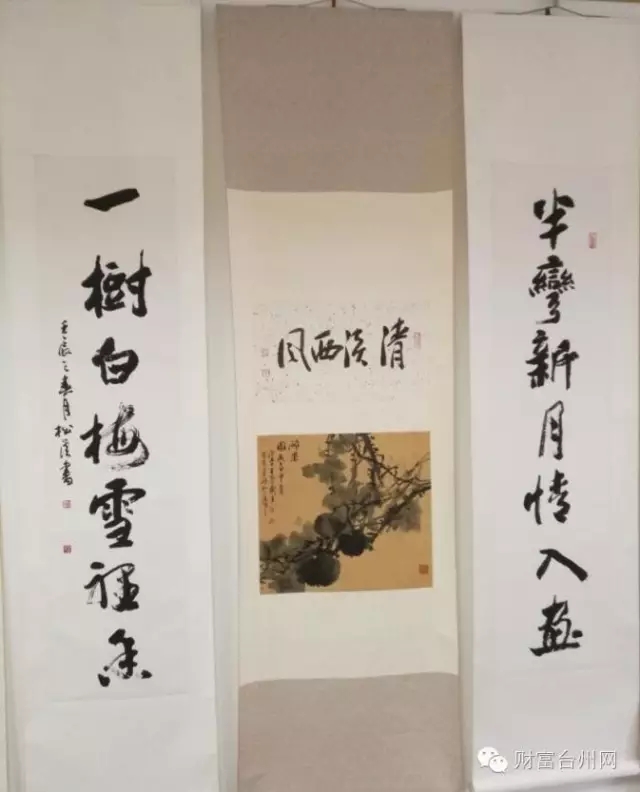 半彎新月情入畫
清淡西风
一樹白梅雪裡香
壬辰之春月松溪書
财富台州网